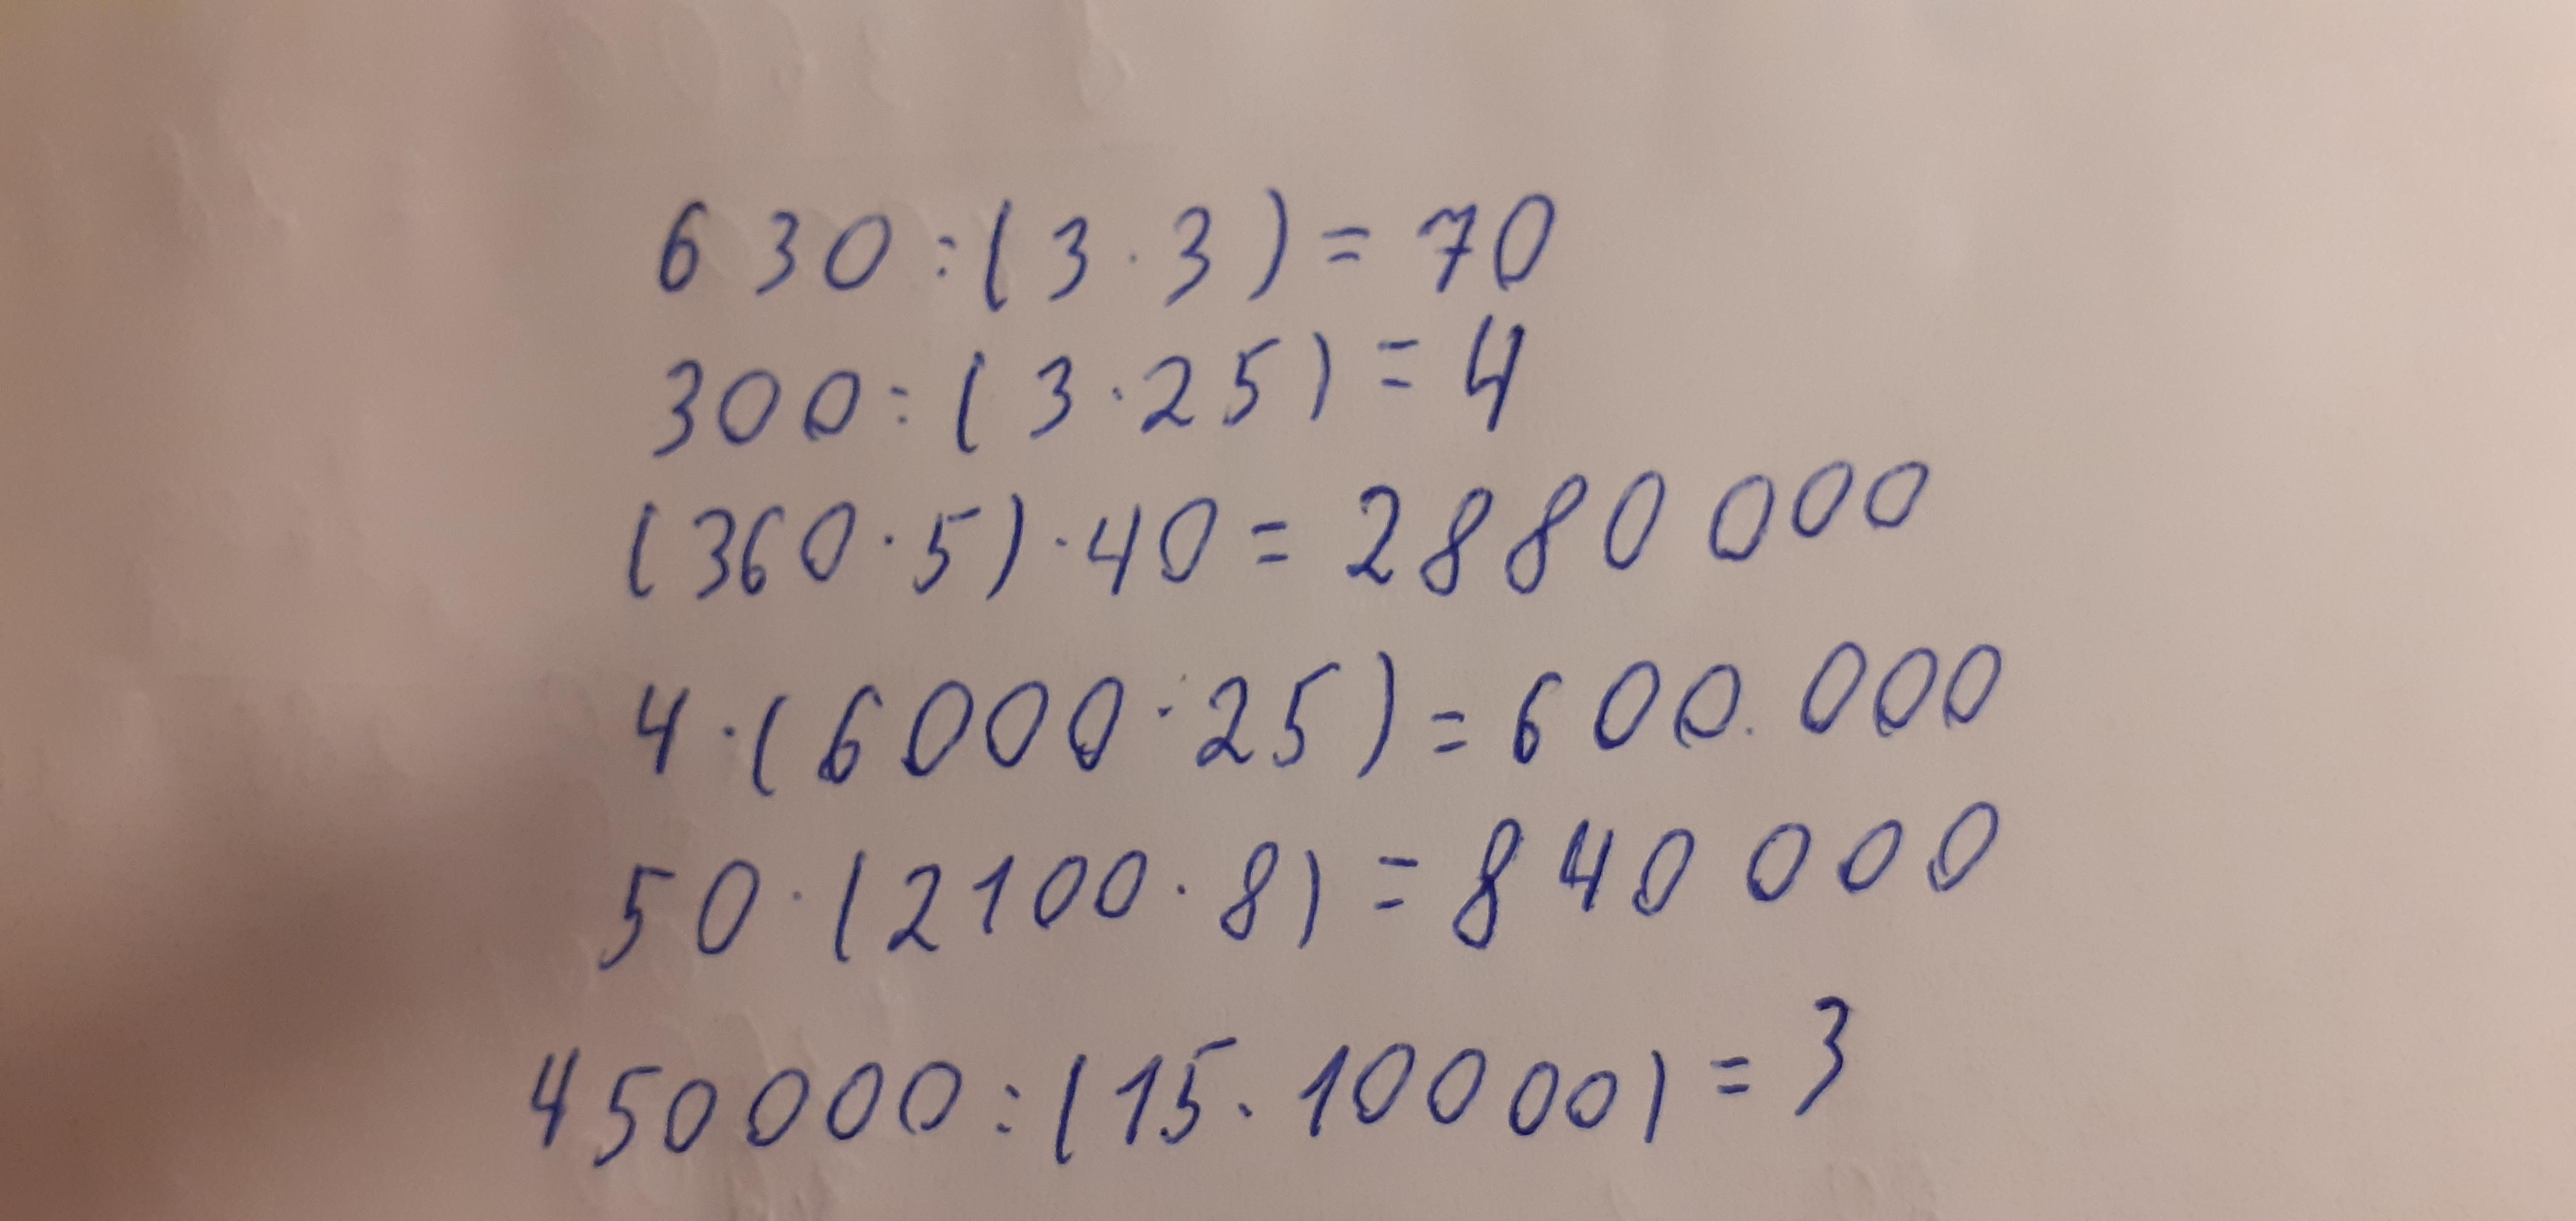 630:(3·3)=70
300:(3·25)=4
(360·5)·40=2880 000
4·(6000·25)=600.000
50·(2100·8)=840 000
450000:(15·10000)=3